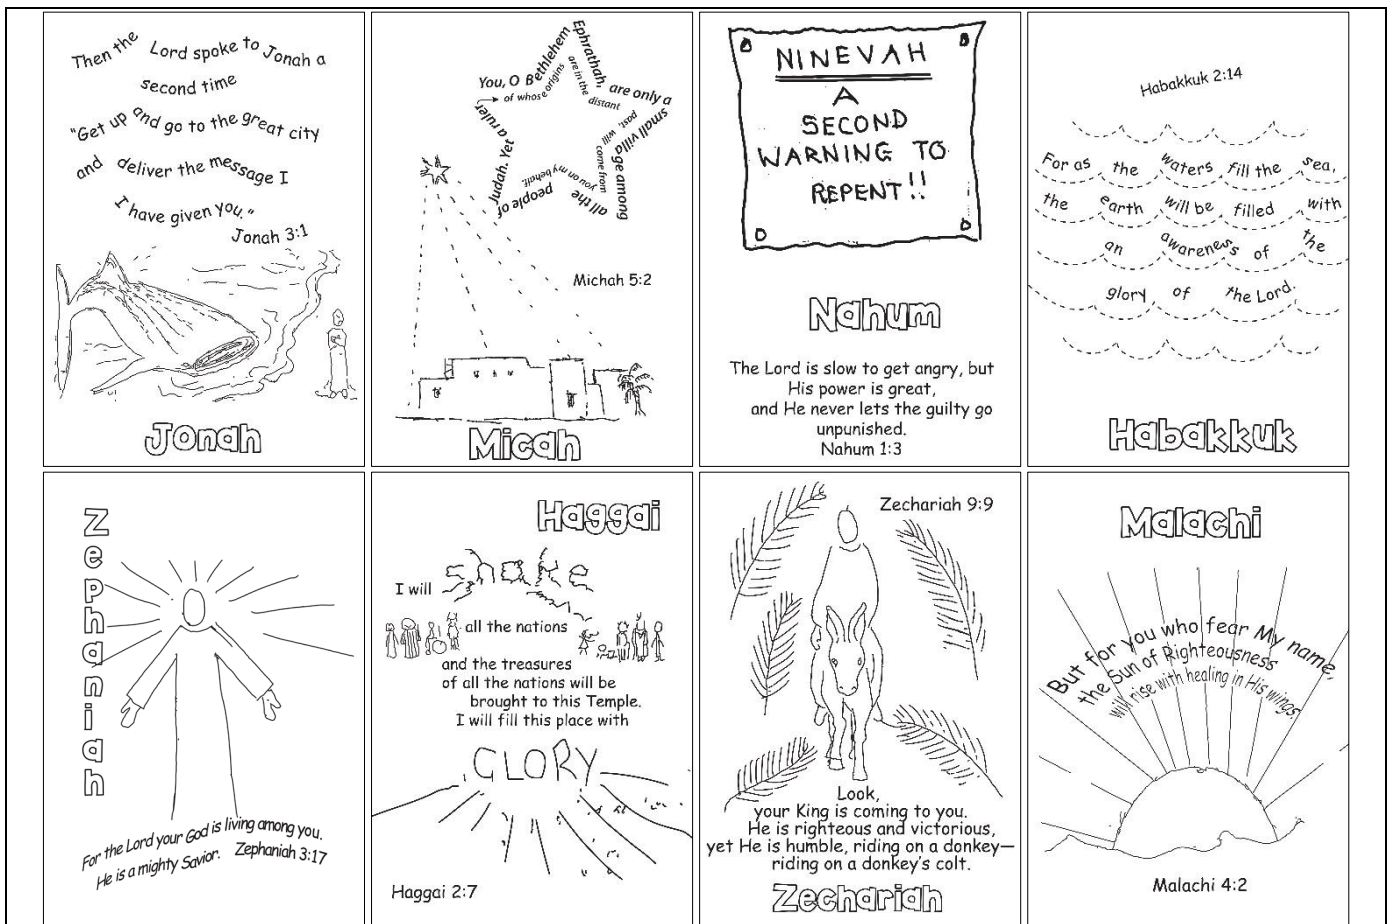 Then the Lord spoke to Jonah a
second time
"Get up and go to the great city
and deliver the message I
I have given you."
Jonah 3:1
Jonah
You, O Bethlehem Ephrathah, are only a small village among all the people of Judah. Yet a ruler
of whose origins are in the distant past, will come from you on my behalf.
Michah 5:2
Micah
NINEVAH
A
SECOND
WARNING TO
REPENT!!
Nahum
The Lord is slow to get angry, but
His power is great,
and He never lets the guilty go
unpunished.
Nahum 1:3
Habakkuk 2:14
For as the waters fill the sea,
the earth will be filled with
an awareness of the
glory of the Lord.
Habakkuk
Zephaniah
For the Lord your God is living among you.
He is a mighty Savior. Zephaniah 3:17
Haggai
I will shake
all the nations
and the treasures
of all the nations will be
brought to this Temple.
I will fill this place with
GLORY
Haggai 2:7
Zechariah 9:9
Look,
your King is coming to you.
He is righteous and victorious,
yet He is humble, riding on a donkey—
riding on a donkey's colt.
Zechariah
Malachi
But for you who fear My name,
the Sun of Righteousness
will rise with healing in His wings.
Malachi 4:2